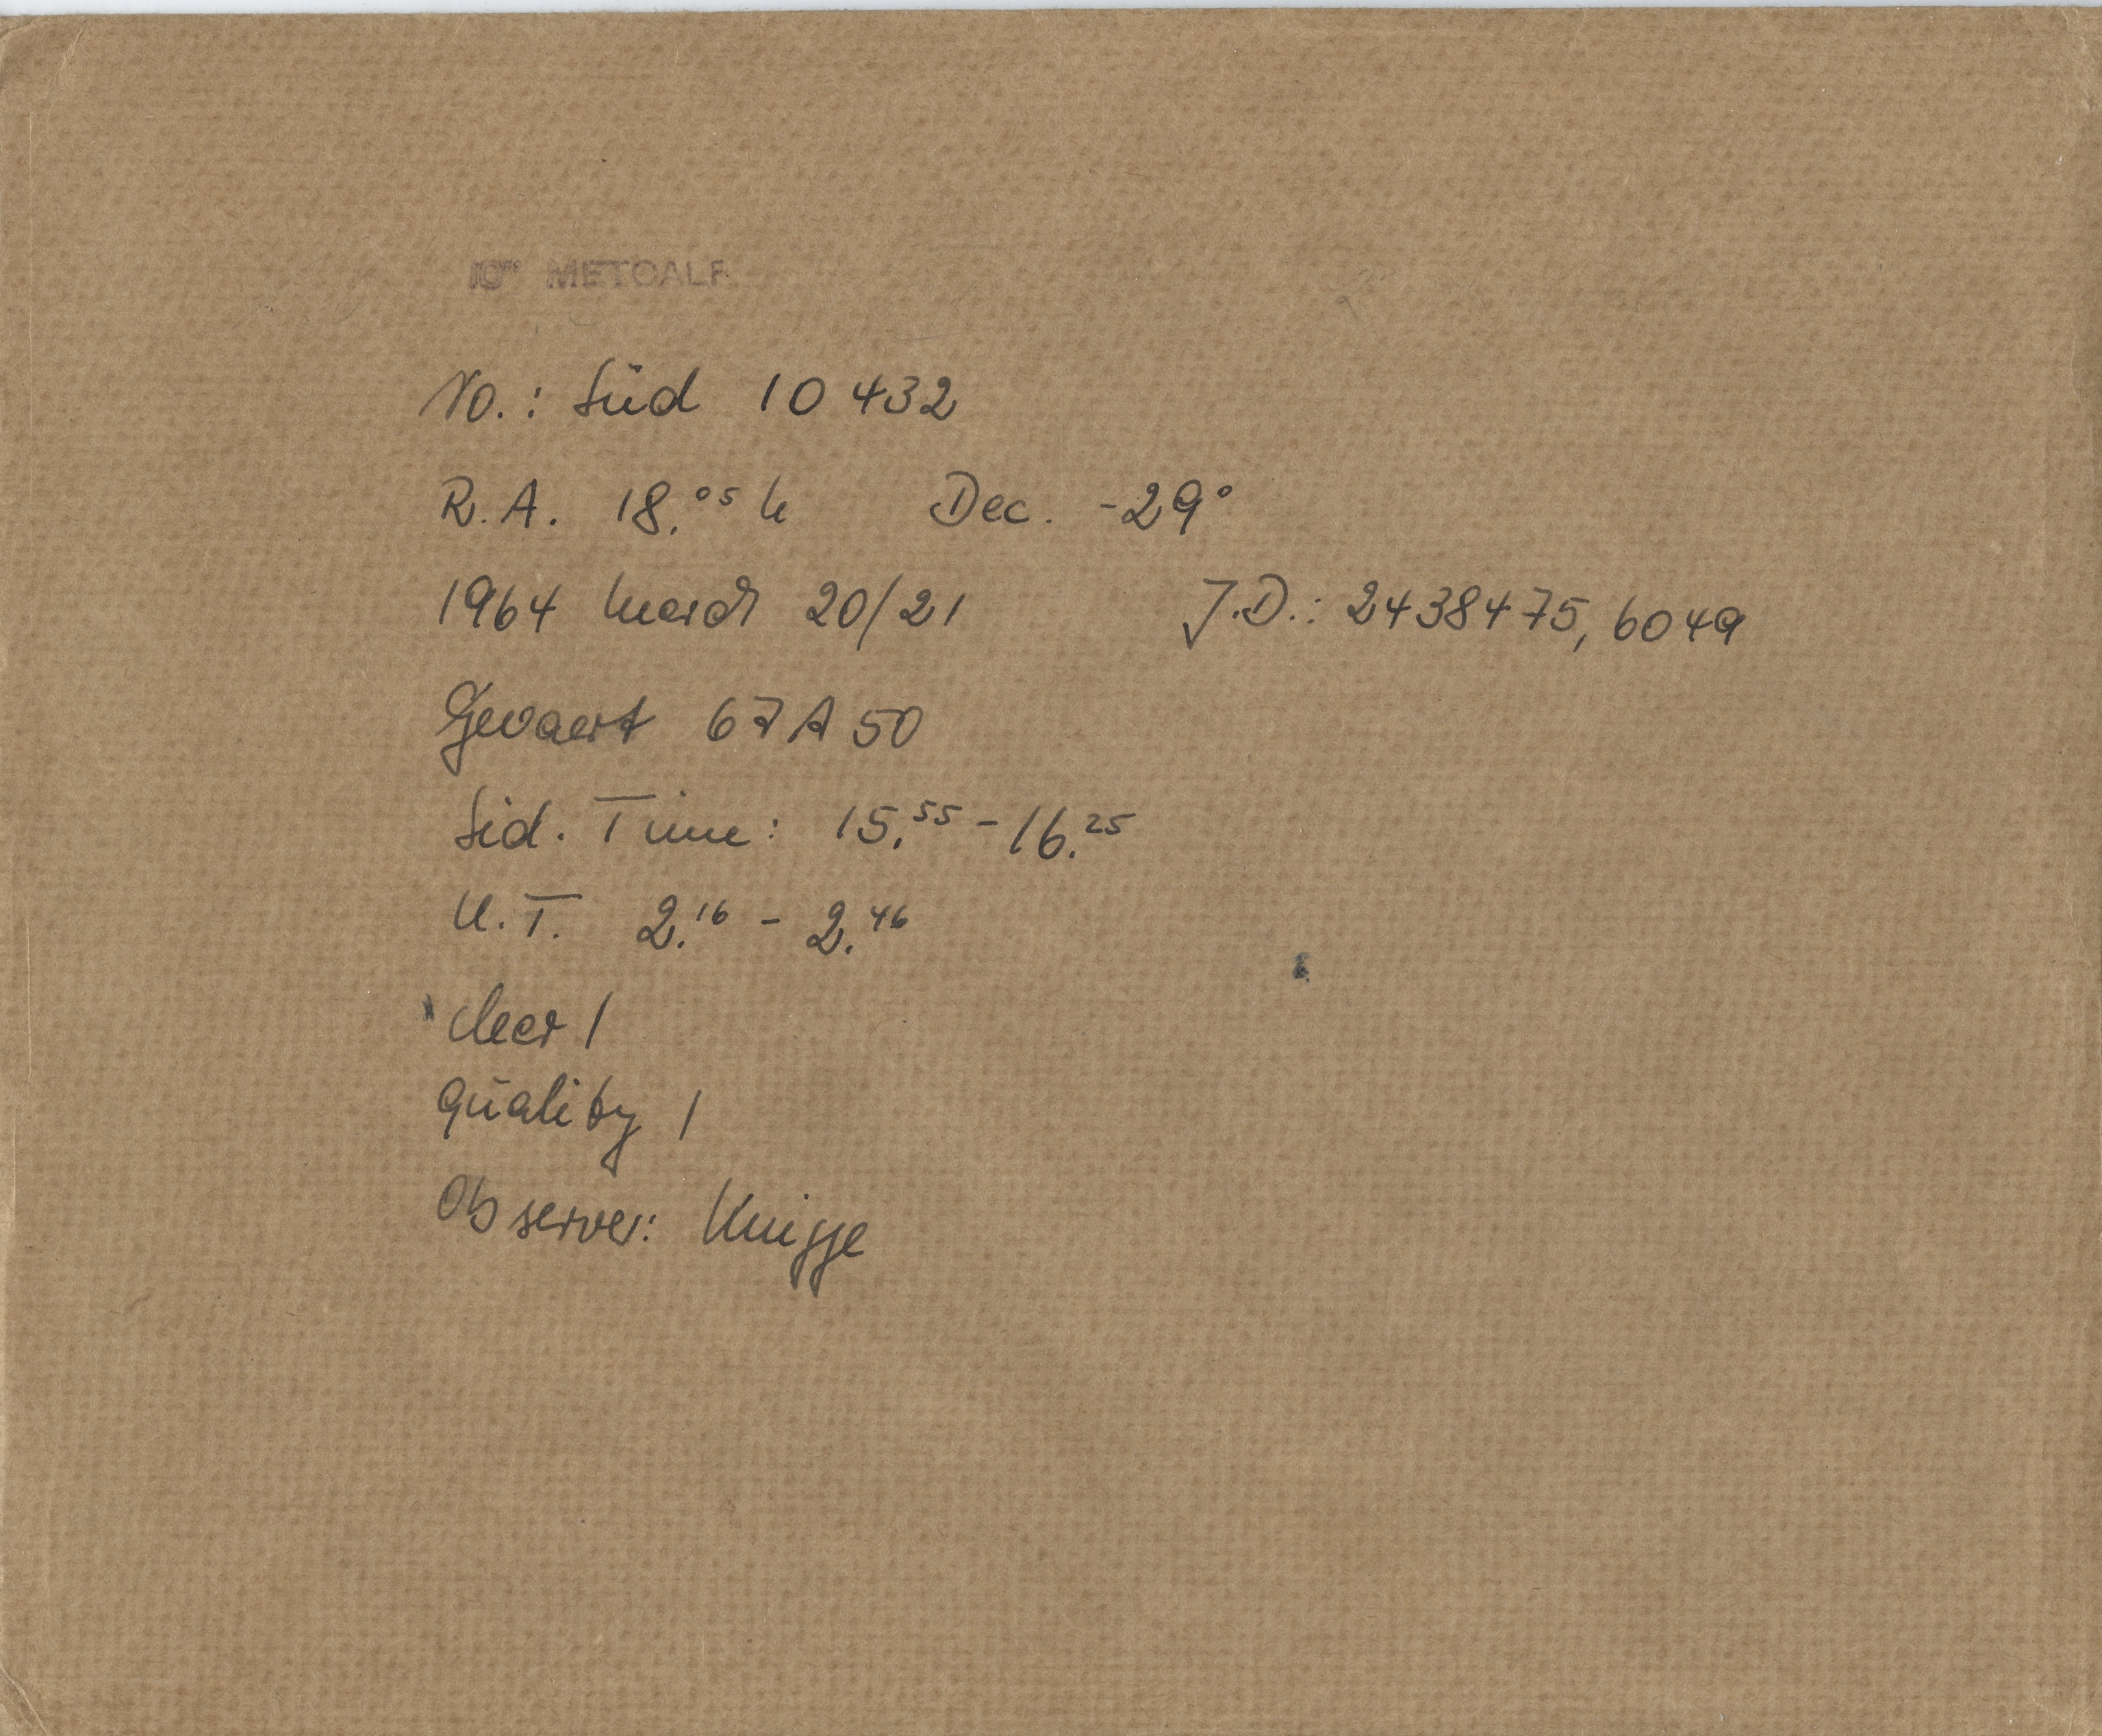 10" METCALF
No.: Süd 10 432
R.A. 18.⁰⁵ h Dec. -29°
1964 March 20/21 J.D.: 2438475,6049
Gevaert 67A50
Sid. Time: 15.⁵⁵ - 16.²⁵
U.T. 2.¹⁶ - 2.⁴⁶
clear 1
Quality 1
Observer: Knigge